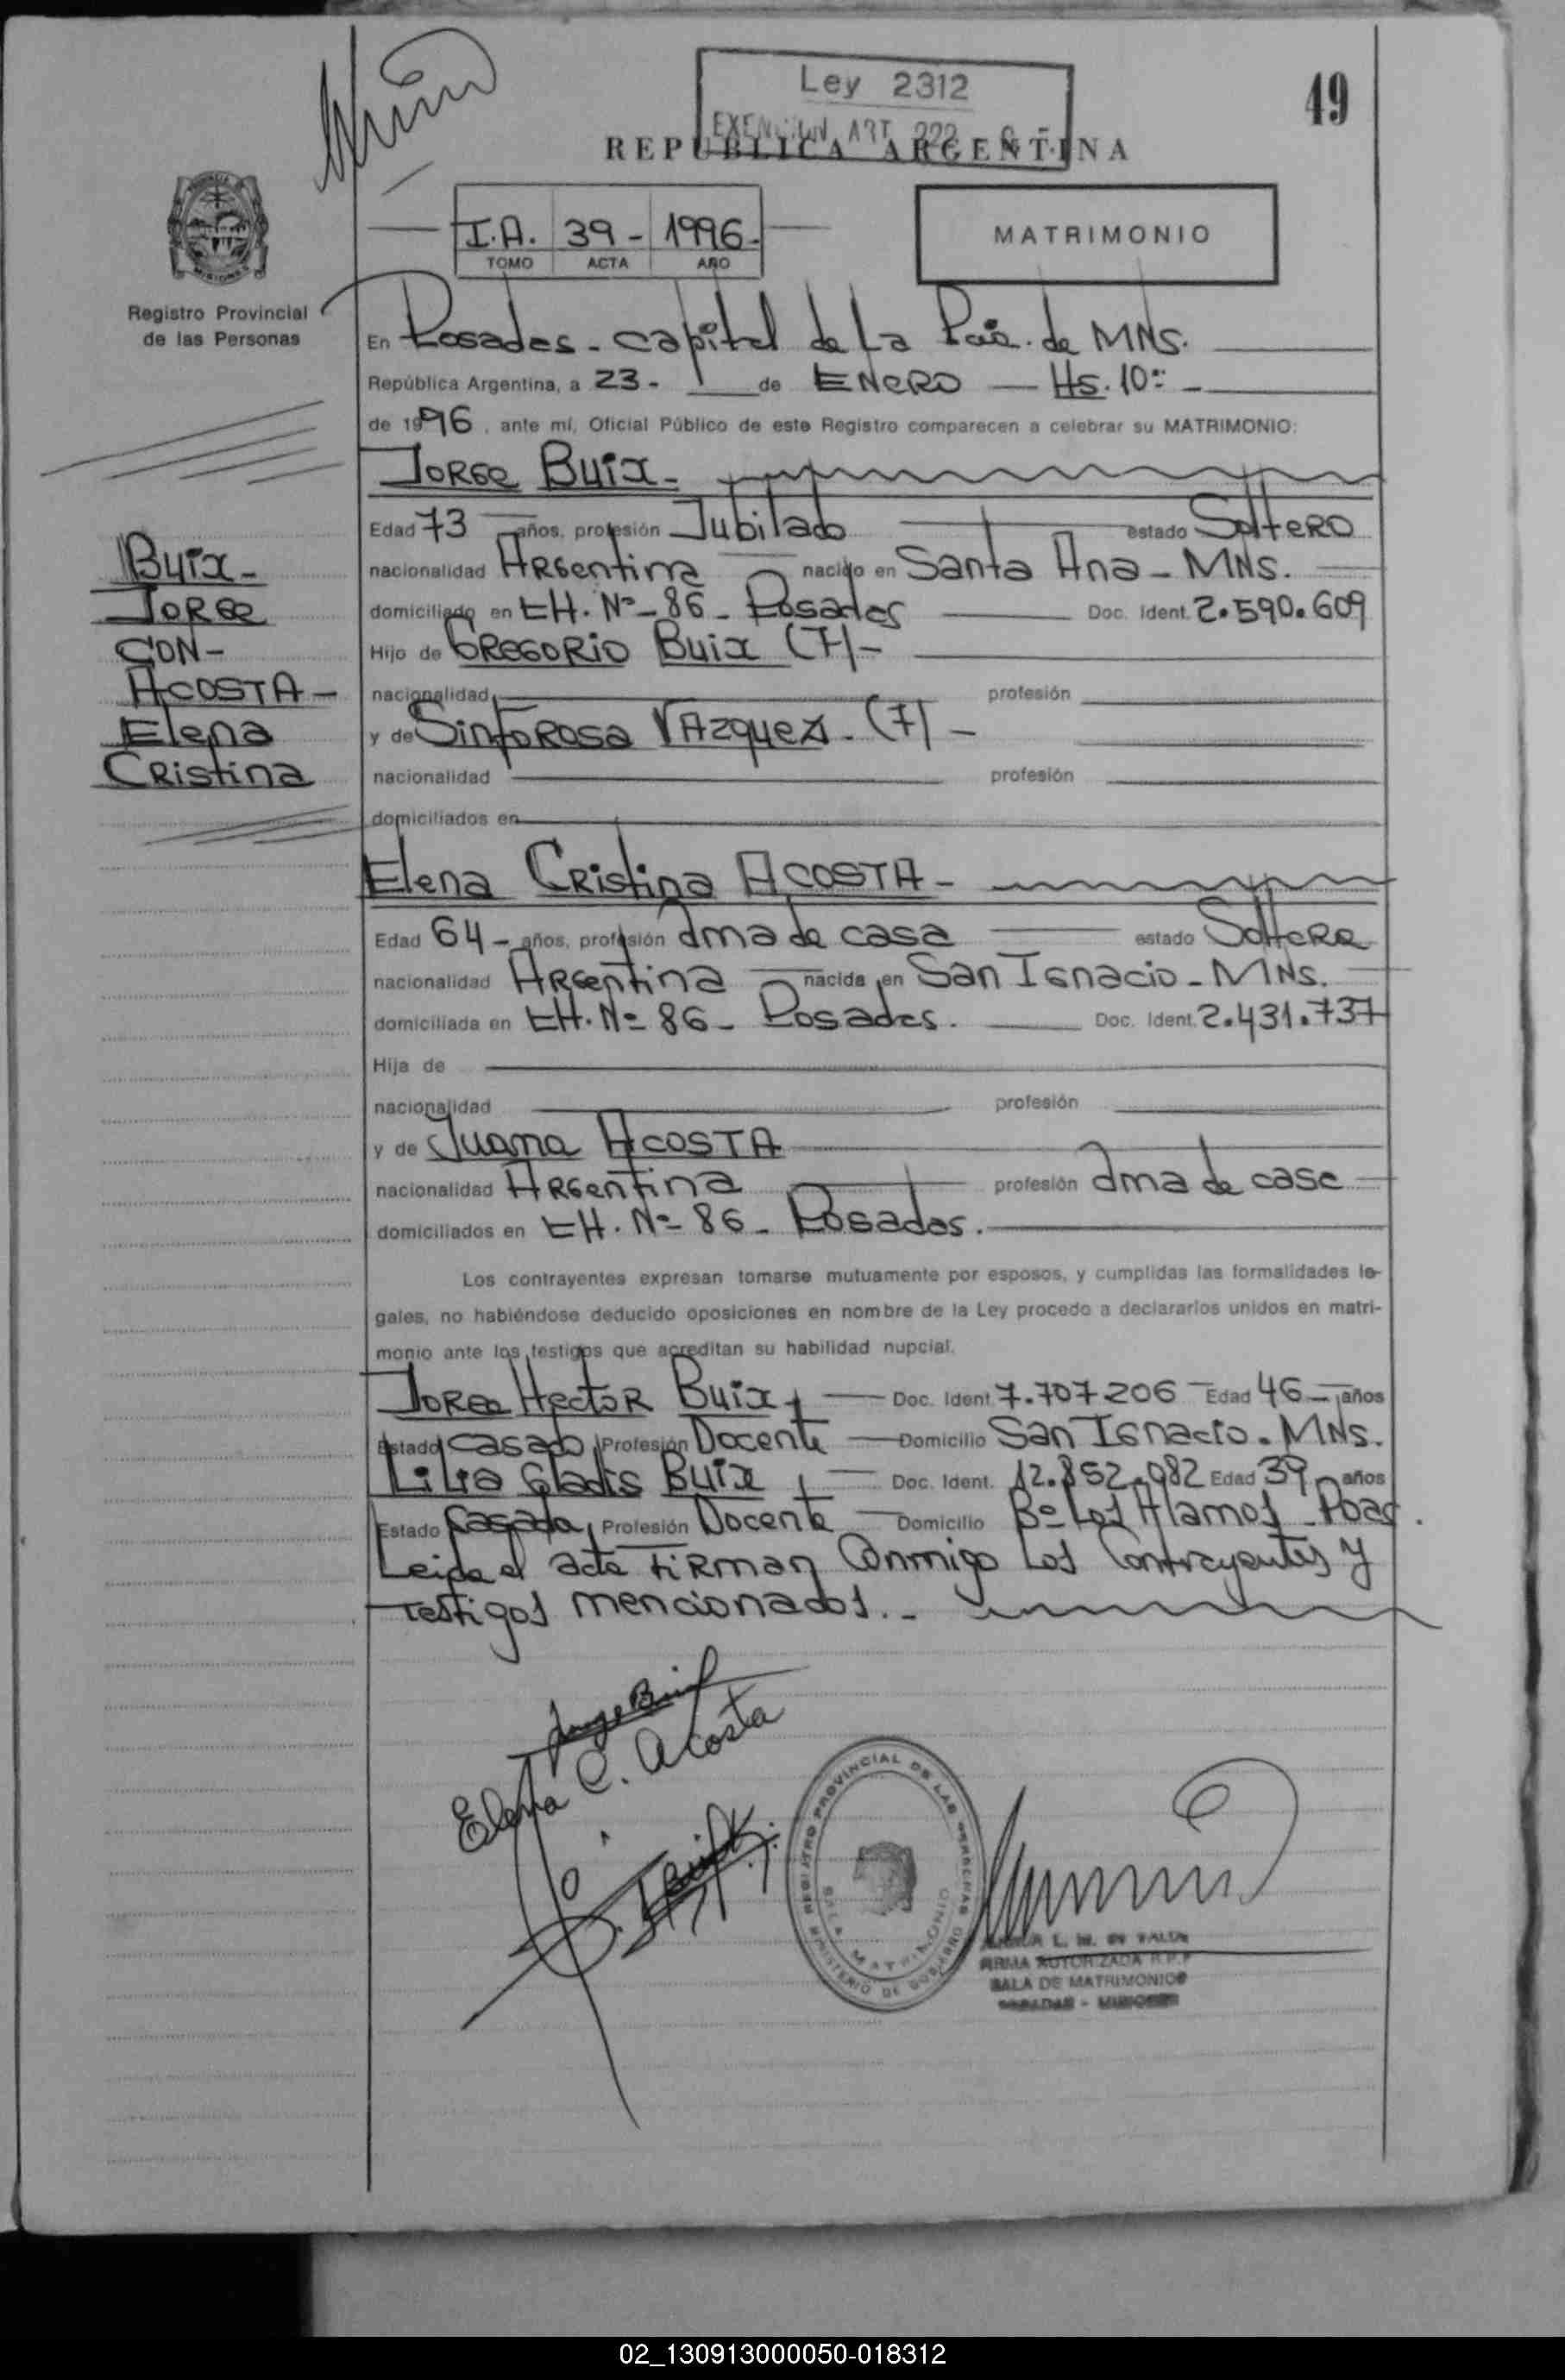 Ley 2312
EXENCION ART. 222
49
REPUBLICA ARGENTINA
I.A. 39- 1996.-
TOMO ACTA AÑO
MATRIMONIO
Registro Provincial
de las Personas
En Posadas. capital de La Pcia. de MNS.
República Argentina, a 23- de ENERO Hs. 10:-
de 1996, ante mí, Oficial Público de este Registro comparecen a celebrar su MATRIMONIO:
JORGE BUIX-
Edad 73 años, profesión Jubilado estado Soltero
nacionalidad Argentina nacido en Santa Ana - MNS.
domiciliado en CH. Nº- 86- Posadas Doc. Ident. 2.590.609
Hijo de GREGORIO BUIX (7)-
nacionalidad profesión
y de SINFOROSA VAZQUEZ. (7)-
nacionalidad profesión
domiciliados en
Buix-
Jorge
CON-
ACOSTA-
Elena
Cristina
Elena Cristina ACOSTA-
Edad 64- años, profesión ama de casa estado Soltera
nacionalidad Argentina nacida en San Ignacio - MNS.
domiciliada en CH. Nº 86- Posadas. Doc. Ident. 2.431.737
Hija de
nacionalidad profesión
y de Juana ACOSTA
nacionalidad Argentina profesión ama de casa
domiciliados en CH. Nº 86- Posadas.
Los contrayentes expresan tomarse mutuamente por esposos, y cumplidas las formalidades le-
gales, no habiéndose deducido oposiciones en nombre de la Ley procedo a declararlos unidos en matri-
monio ante los testigos que acreditan su habilidad nupcial.
Jorge Hector Buix, Doc. Ident. 7.707.206 Edad 46 años
Estado casado, Profesión Docente Domicilio San Ignacio. MNS.
Lilia Gladis Buix, Doc. Ident. 12.852.982 Edad 39 años
Estado Casada, Profesión Docente Domicilio Bº Los Alamos - Pdas.
Leida el acta firman Conmigo Los Contrayentes y
Testigos mencionados.-
Jorge Buix
Elena C. Acosta
REGISTRO PROVINCIAL DE LAS PERSONAS
SALA MATRIMONIO
MINISTERIO DE GOBIERNO
FIRMA AUTORIZADA R.P.P.
SALA DE MATRIMONIOS
POSADAS - MISIONES
02_130913000050-018312